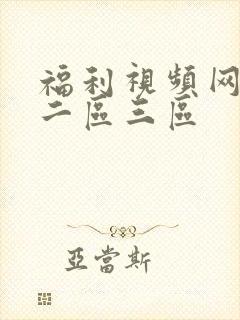 福利視頻网
二區三區
亞當斯